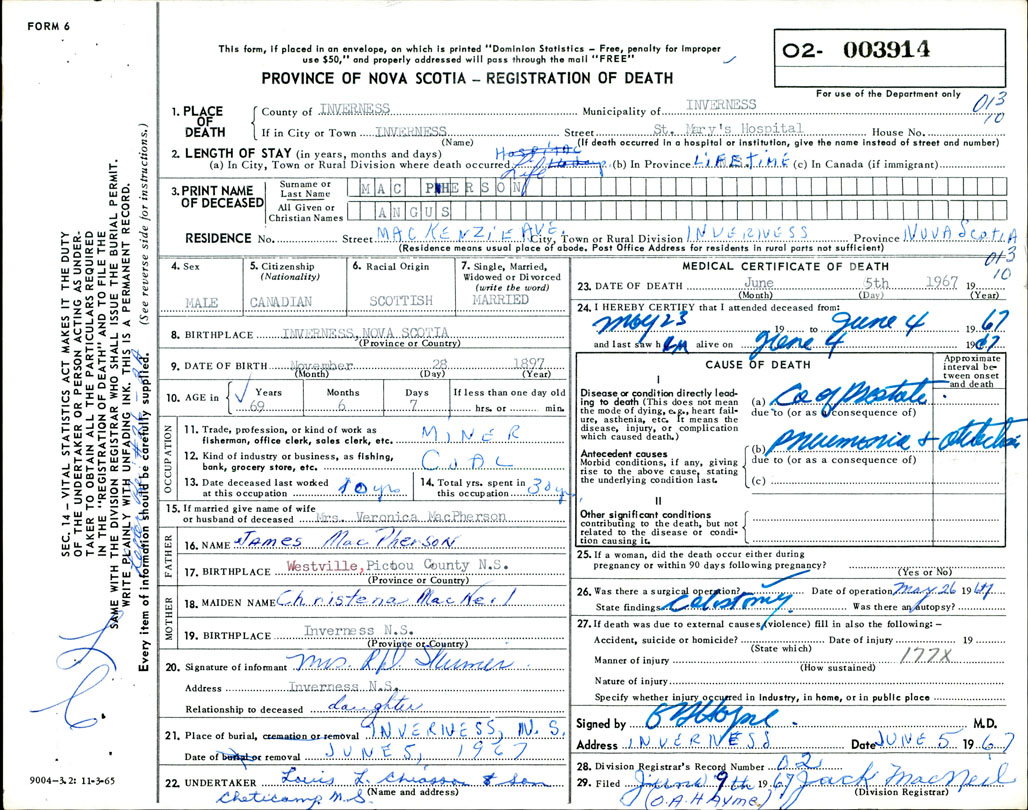 FORM 6
This form, if placed in an envelope, on which is printed "Dominion Statistics – Free, penalty for improper
use $50," and properly addressed will pass through the mail "FREE"
PROVINCE OF NOVA SCOTIA – REGISTRATION OF DEATH
O2- 003914
For use of the Department only
013
10
1. PLACE OF DEATH County of INVERNESS Municipality of INVERNESS
If in City or Town INVERNESS Street St. Mary's Hospital House No.
(Name) (If death occurred in a hospital or institution, give the name instead of street and number)
2. LENGTH OF STAY (in years, months and days)
(a) In City, Town or Rural Division where death occurred Life (b) In Province LIFETIME (c) In Canada (if immigrant)
3. PRINT NAME OF DECEASED
Surname or Last Name MAC PHERSON
All Given or Christian Names ANGUS
RESIDENCE No. Street MACKENZIE AVE. City, Town or Rural Division INVERNESS Province NOVA SCOTIA
(Residence means usual place of abode. Post Office Address for residents in rural parts not sufficient)
013
10
4. Sex MALE
5. Citizenship (Nationality) CANADIAN
6. Racial Origin SCOTTISH
7. Single, Married, Widowed or Divorced (write the word) MARRIED
8. BIRTHPLACE INVERNESS, NOVA SCOTIA
(Province or Country)
9. DATE OF BIRTH November 28 1897
(Month) (Day) (Year)
10. AGE in Years 69 Months 6 Days 7 If less than one day old hrs. or min.
OCCUPATION
11. Trade, profession, or kind of work as fisherman, office clerk, sales clerk, etc. MINER
12. Kind of industry or business, as fishing, bank, grocery store, etc. COAL
13. Date deceased last worked at this occupation 10 yrs
14. Total yrs. spent in this occupation 30 yrs
15. If married give name of wife or husband of deceased Mrs. Veronica MacPherson
FATHER
16. NAME James MacPherson
17. BIRTHPLACE Westville, Pictou County N.S.
(Province or Country)
MOTHER
18. MAIDEN NAME Christena MacNeil
19. BIRTHPLACE Inverness N.S.
(Province or Country)
20. Signature of informant Mrs.
Address Inverness N.S.
Relationship to deceased daughter
21. Place of burial, cremation or removal INVERNESS, N.S.
Date of burial or removal JUNE 5, 1967
22. UNDERTAKER Louis L. Chiasson & Son
Cheticamp, N.S. (Name and address)
MEDICAL CERTIFICATE OF DEATH
23. DATE OF DEATH June 5th 1967 19
(Month) (Day) (Year)
24. I HEREBY CERTIFY that I attended deceased from:
May 23 19 to June 4 1967
and last saw him alive on June 4 1967
CAUSE OF DEATH
Approximate interval between onset and death
I
Disease or condition directly leading to death (This does not mean the mode of dying, e.g., heart failure, asthenia, etc. It means the disease, injury, or complication which caused death.)
(a) Ca of Prostate
due to (or as a consequence of)
Antecedent causes
Morbid conditions, if any, giving rise to the above cause, stating the underlying condition last.
(b) pneumonia +
due to (or as a consequence of)
(c)
II
Other significant conditions contributing to the death, but not related to the disease or condition causing it.
25. If a woman, did the death occur either during pregnancy or within 90 days following pregnancy?
(Yes or No)
26. Was there a surgical operation? Date of operation May 26 1967
State findings Colostomy Was there an autopsy?
27. If death was due to external causes (violence) fill in also the following: –
Accident, suicide or homicide? Date of injury 19
(State which)
Manner of injury 177X
(How sustained)
Nature of injury
Specify whether injury occurred in industry, in home, or in public place
Signed by M.D.
Address INVERNESS Date JUNE 5 1967
28. Division Registrar's Record Number 02
29. Filed June 9th 1967 Jack MacNeil
(Division Registrar)
SEC. 14 – VITAL STATISTICS ACT MAKES IT THE DUTY
OF THE UNDERTAKER OR PERSON ACTING AS UNDER-
TAKER TO OBTAIN ALL THE PARTICULARS REQUIRED
IN THE "REGISTRATION OF DEATH" AND TO FILE THE
SAME WITH THE DIVISION REGISTRAR WHO SHALL ISSUE THE BURIAL PERMIT.
WRITE PLAINLY WITH UNFADING INK. THIS IS A PERMANENT RECORD.
Every item of information should be carefully supplied. (See reverse side for instructions.)
9004–3.2: 11-3-65